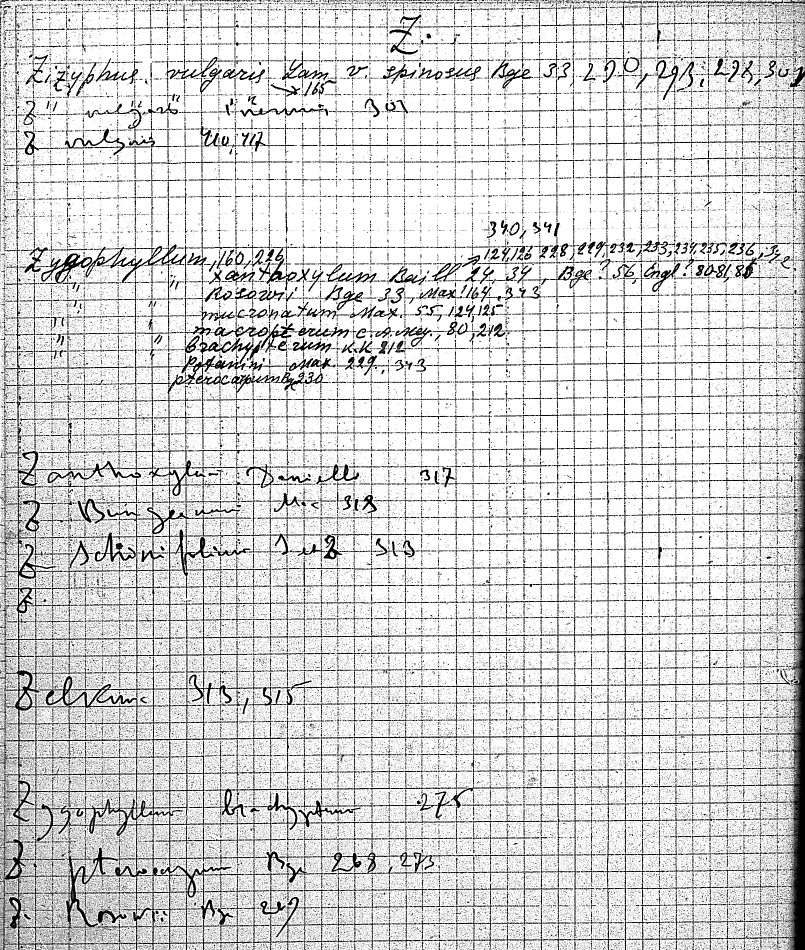 Z.
Zizyphus. vulgaris Lam v. spinosus Bge 33, 290, 293, 298, 301
165
Z " vulgaris inermis 301
Z vulgaris 410, 417
340, 341
124,126 228, 229, 232, 233, 234, 235, 236, 342
Zygophyllum, 160, 226
" xanthoxylum Baill 24, 34, Bge? 56, Engl? 80 81, 86
" Rosowii Bge 33, Max! 164, 343
" " mucronatum Max. 55, 124, 125
" macropterum C.A.Mey., 80, 212
" " brachypterum K.K 212
Potanini Max. 229, 343
pterocarpum Bg 230
Zanthoxylum Danielli 317
Z Bungeanum Max 318
Z Schinifolium S et Z 313
Z.
Zelkova 313, 315
Zygophyllum brachypterum 275
Z. pterocarpum Bge 268, 273
Z. Rosowii Bge